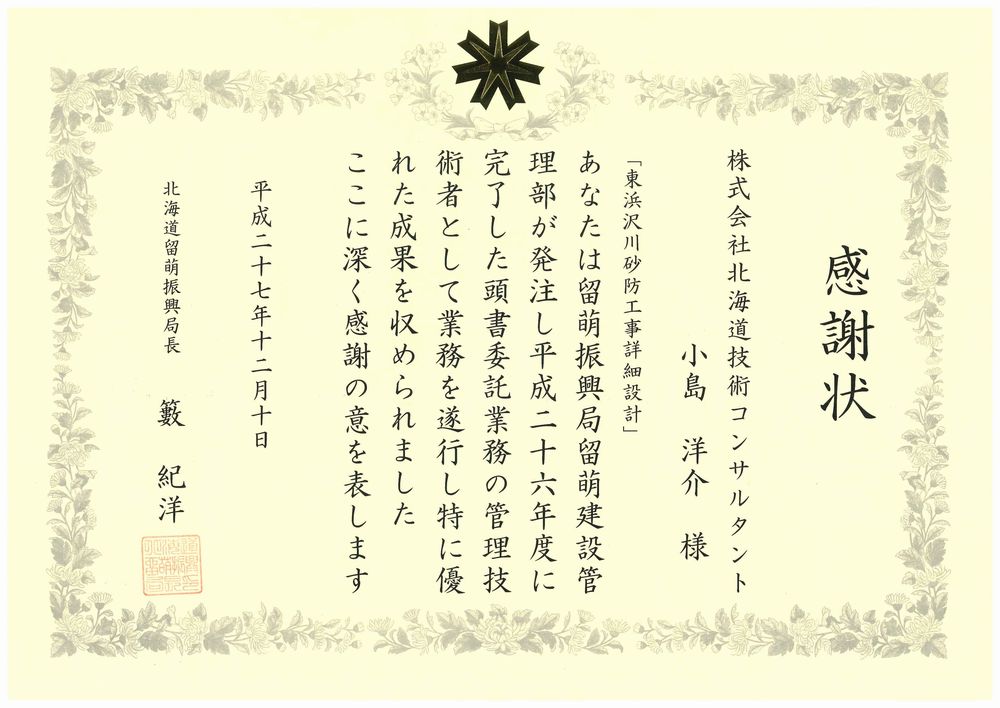 感謝状
株式会社北海道技術コンサルタント
小島 洋介 様
「東浜沢川砂防工事詳細設計」
あなたは留萌振興局留萌建設管
理部が発注し平成二十六年度に
完了した頭書委託業務の管理技
術者として業務を遂行し特に優
れた成果を収められました
ここに深く感謝の意を表します
平成二十七年十二月十日
北海道留萌振興局長 籔 紀洋